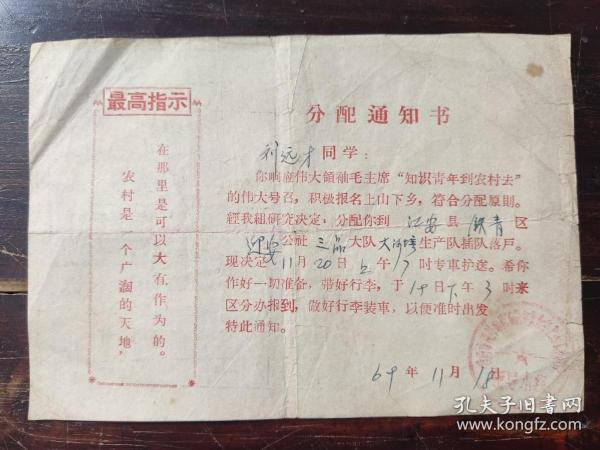 最高指示
农村是一个广濶的天地，
在那里是可以大有作为的。
分配通知书
刘远才同学：
你响应伟大領袖毛主席“知識青年到农村去”
的伟大号召，积极报名上山下乡，符合分配原則。
經我組研究决定：分配你到江安县铁青区
迎安公社三品大队生产队插队落戶。
现决定11月20日上午7时专車护送。希你
作好一切准备，带好行李，于19日下午3时来
区分办报到，做好行李装車，以便准时出发
特此通知。
69年11月18日
孔夫子旧书网
www.kongfz.com